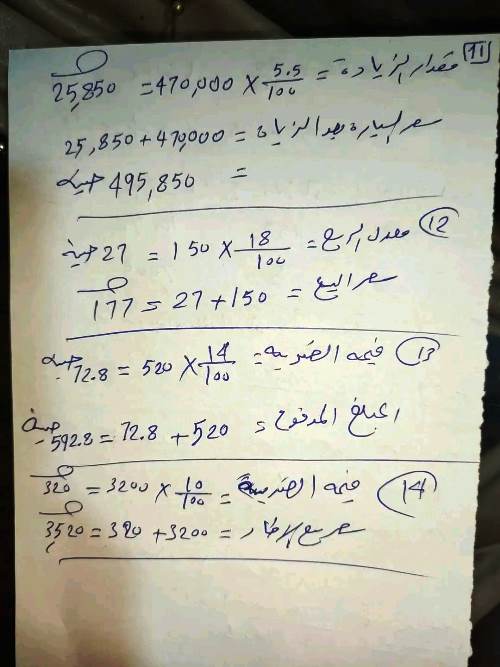 11 مقدار الزيادة = 5.5/100 × 470,000 = 25,850 جنيه
سعر السيارة بعد الزيادة = 470,000 + 25,850
= 495,850 جنيه
12 معدل الربح = 18/100 × 150 = 27 جنية
سعر البيع = 150 + 27 = 177 جنيه
13 قيمة الضريبة = 14/100 × 520 = 72.8 جنيه
المبلغ المدفوع = 520 + 72.8 = 592.8 جنية
14 قيمة الضريبة = 10/100 × 3200 = 320 جنيه
سعر بيع = 3200 + 320 = 3,520 جنيه